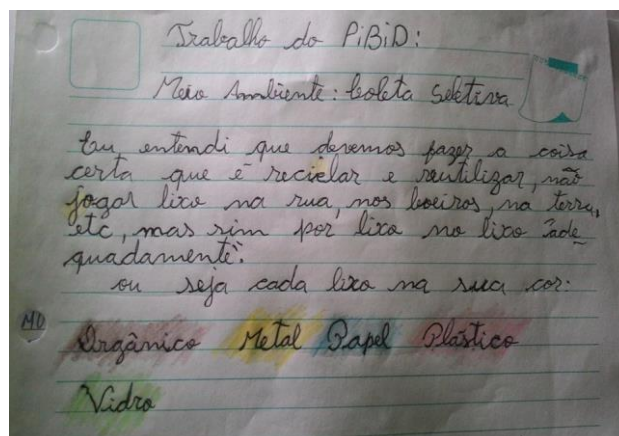 Trabalho do PiBiD:
Meio Ambiente: Coleta Seletiva
Eu entendi que devemos fazer a coisa
certa que é reciclar e reutilizar, não
jogar lixo na rua, nos boeiros, na terra,
etc, mas sim por lixo no lixo "ade
quadamente".
ou seja cada lixo na sua cor:
MD
Orgânico Metal Papel Plástico
Vidro